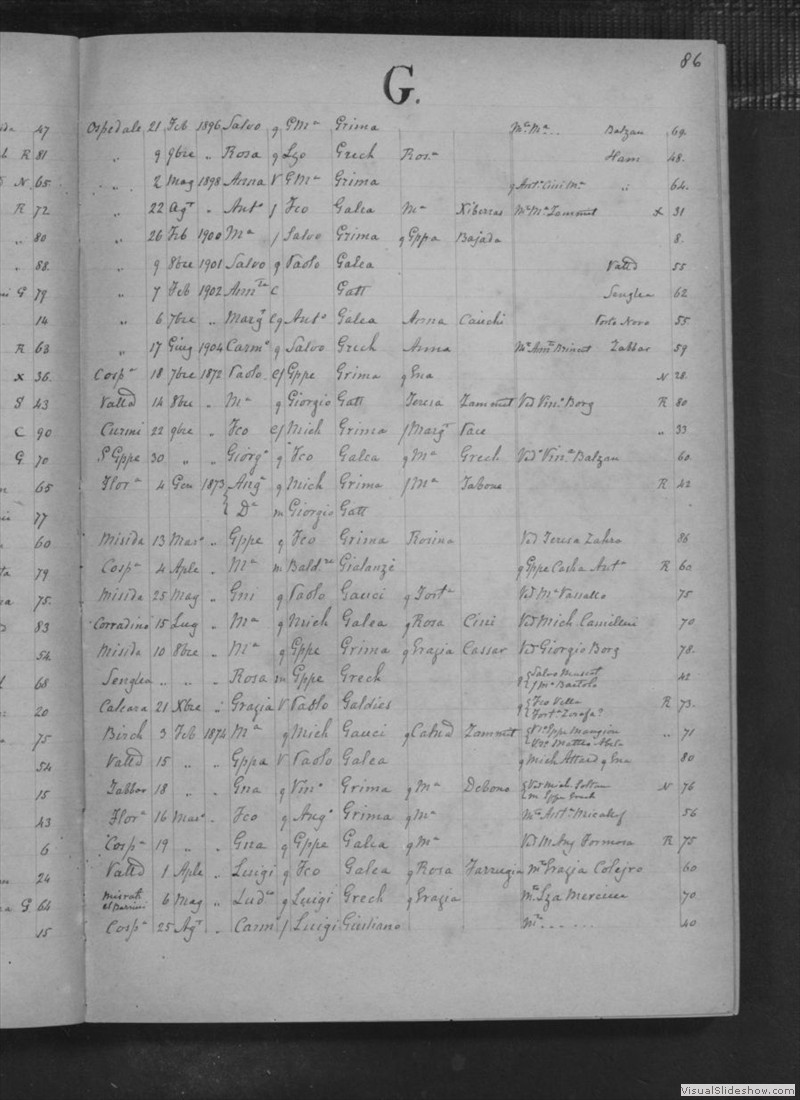 86
G.
47 Ospedale 21 Feb 1896 Salvo q GMa Grima Ma Ma .. Balzan 69.
R 81 „ 9 9bre „ Rosa q Lzo Grech Rosa Ham 48.
N 65. „ 2 Mag 1898 Anna V GMa Grima q Anto Cini Ma „ 64.
R 72 „ 22 Agt „ Anto f Fco Galea Ma Xiberras Ma Ma Zammit x 31
80 „ 26 Feb 1900 Ma f Salvo Grima q Gppa Bajada 8.
„ 88. „ 9 8bre 1901 Salvo q Paolo Galea Valld 55
G 79 „ 7 Feb 1902 c Gatt Senglea 62
14 „ 6 7bre „ Margt cq Anto Galea Anna Cauchi Porto Novo 55
R 63 „ 17 Giug 1904 Carmo q Salvo Grech Anna Zabbar 59
x 36. Cospa 18 7bre 1872 Paolo cf Gppe Grima q Gna N 28.
S 43 Valld 14 8bre „ Ma q Giorgio Gatt Teresa Zammit Ved Vino Borg R 80
C 90 Curmi 22 9bre „ Fco cf Mich Grima f Margt Pace „ 33
G 70 S Gppe 30 „ „ Giorgo q Fco Galea q Ma Grech Veda Vina Balzan 60.
65 Flora 4 Gen 1873 Anga q Mich Grima f Ma Tabone R 42
77 Da m Giorgio Gatt
60 Misida 13 Maro „ Gppe q Fco Grima Rosina Ved Teresa Zahra 86
79 Cospa 4 Aple „ Ma m Gialanzè q Gppe Casha Anta R 60
75. Misida 25 Mag „ Gni q Paolo Gauci q Forta Ved Ma Vassallo 75
83 Corradino 15 Lug „ Ma q Mich Galea q Rosa Cini Ved Mich Camilleri 70
54. Misida 10 8bre „ Ma q Gppe Grima q Grazia Cassar Ved Giorgio Borg 78.
68 Senglea „ „ Rosa m Gppe Grech q Salvo Muscat f Ma Bartolo 42
20 Calcara 21 Xbre „ Grazia V Paolo Galdies q Fco Vella Forta Zorafa? R 73.
75 Birch 3 Feb 1874 Ma q Mich Gauci q Catnd Zammit Gppe Mangion Matteo Abela „ 71
54 Valld 15 „ „ Gppa V Paolo Galea q Mich Attard q Gna 80
15 Zabbar 18 „ „ Gna q Vino Grima q Ma Debono Ved Mich Soltan m Gppe Grech N 76
43 Flora 16 Maro „ Fco q Ango Grima q Ma Ma Anta Micalef 56
6 Cospa 19 „ „ Gna q Gppe Galea q Ma Ved M Ang Formosa R 75
24 Valld 1 Aple „ Luigi q Fco Galea q Rosa Farrugia Ma Grazia Colejro 60
G 64 Misrah el Barrieri 6 Mag „ q Luigi Grech q Grazia Ma Lza Mercieca 70
15 Cospa 25 Agt „ Carm f Luigi Giuliano Ma ..... 40
VisualSlideshow.com